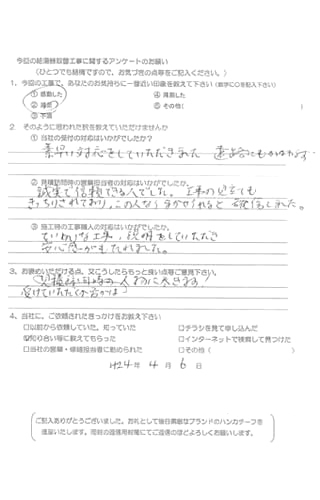 今回の給湯器取替工事に関するアンケートのお願い
(ひとつでも結構ですので、お気づきの点等をご記入ください。)
1、今回の工事で、あなたのお気持ちに一番近い印象を教えて下さい(数字に○を記入下さい)
① 感動した ④ 満足した
② 満足 ⑤ その他( )
③ 不満
2 そのように思われた訳を教えていただけませんか
① 当社の受付の対応はいかがでしたか?
素早い対応をしていただきました
② 見積訪問時の営業担当者の対応はいかがでしたか。
誠実で信頼できる人でした。工事の見立ても
きっちりされており、この人なら まかせられると 確信しました。
③ 施工時の工事職人の対応はいかがでしたか
ていねいな工事、説明をしていただき
安心感がもたれました。
3、お褒めいただける点、又こうしたらもっと良い点等ご意見下さい。
4、当社に、ご依頼されたきっかけをお教え下さい
□以前から依頼していた。知っていた □チラシを見て申し込んだ
☑知り合い等に教えてもらった □インターネットで検索して見つけた
□当社の営業・修繕担当者に勧められた □その他( )
2024 年 4 月 6 日
ご記入ありがとうございました。お礼として後日素敵なブランドのハンカチーフを
進呈いたします。